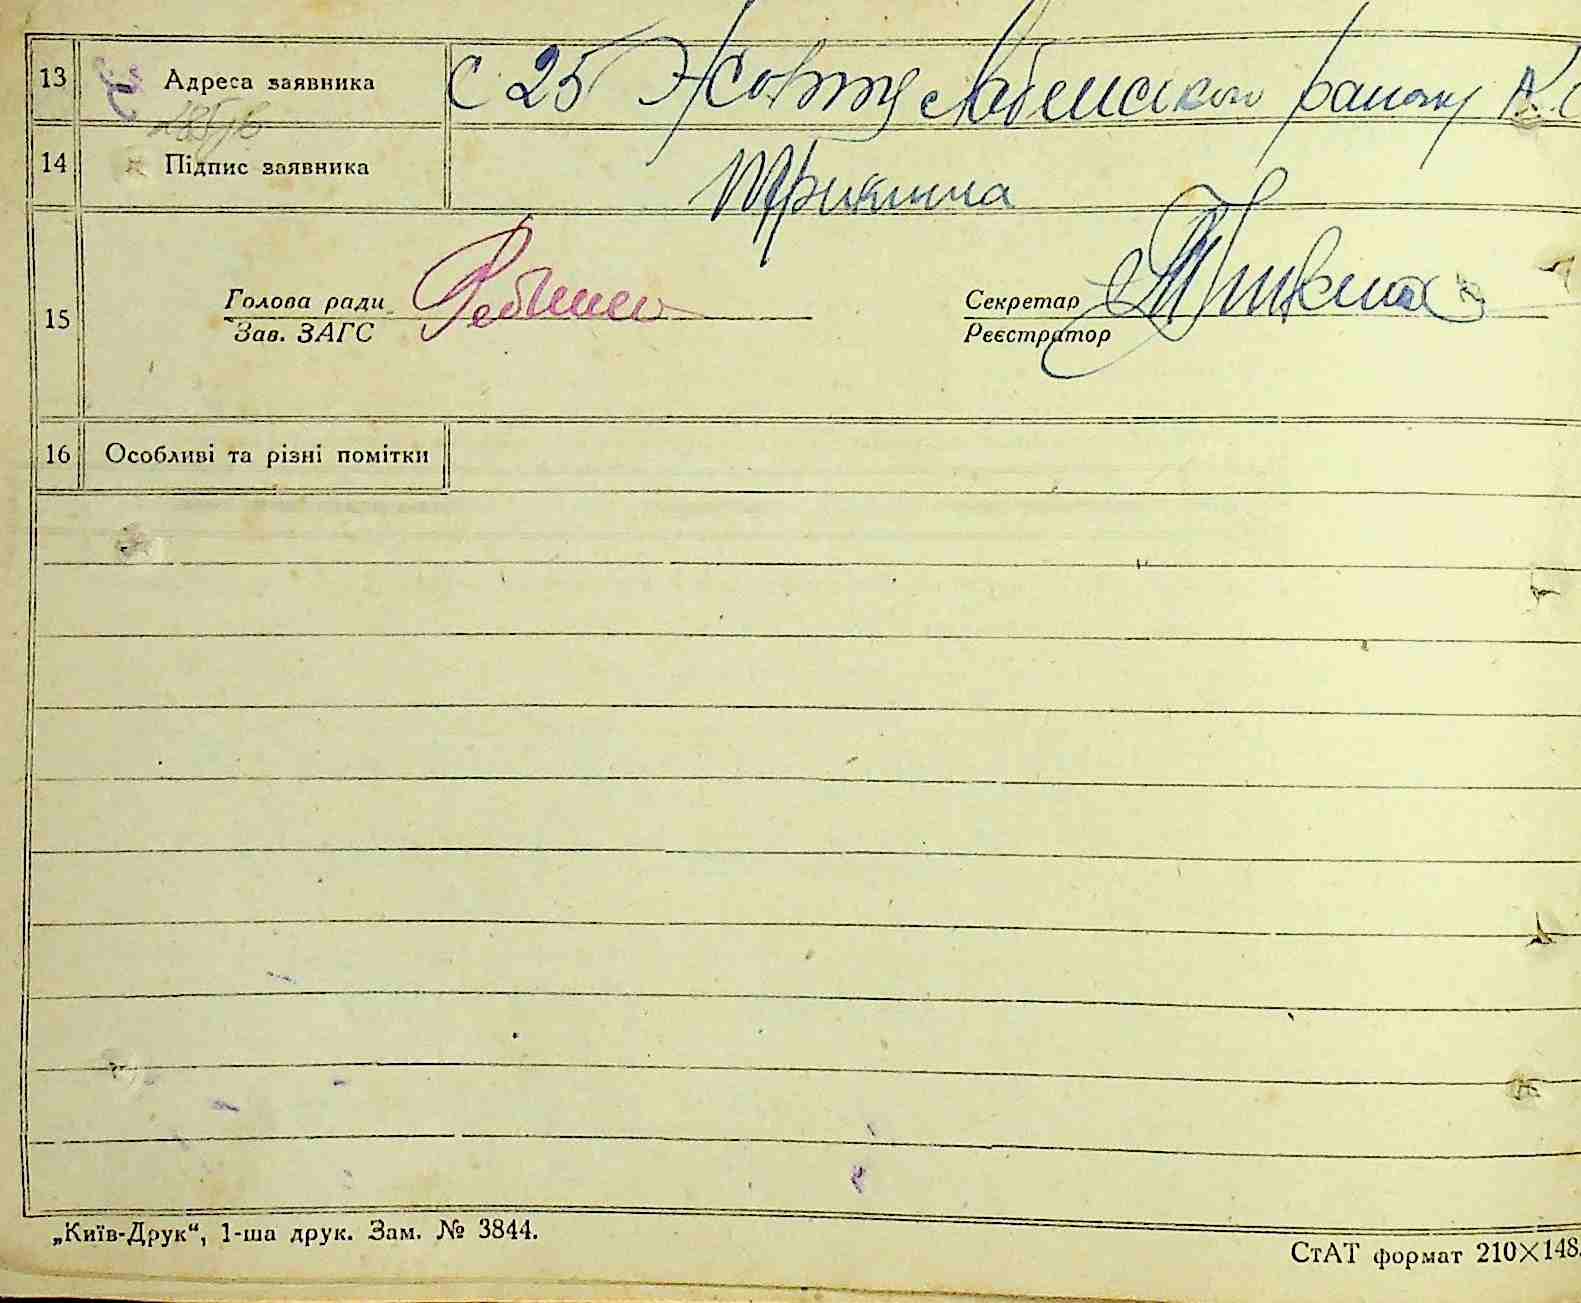 13 Адреса заявника с 25 Жовтня району
14 Підпис заявника
15 Голова ради Секретар
Зав. ЗАГС Реєстратор
16 Особливі та різні помітки
„Київ-Друк“, 1-ша друк. Зам. № 3844.
СтАТ формат 210×148.